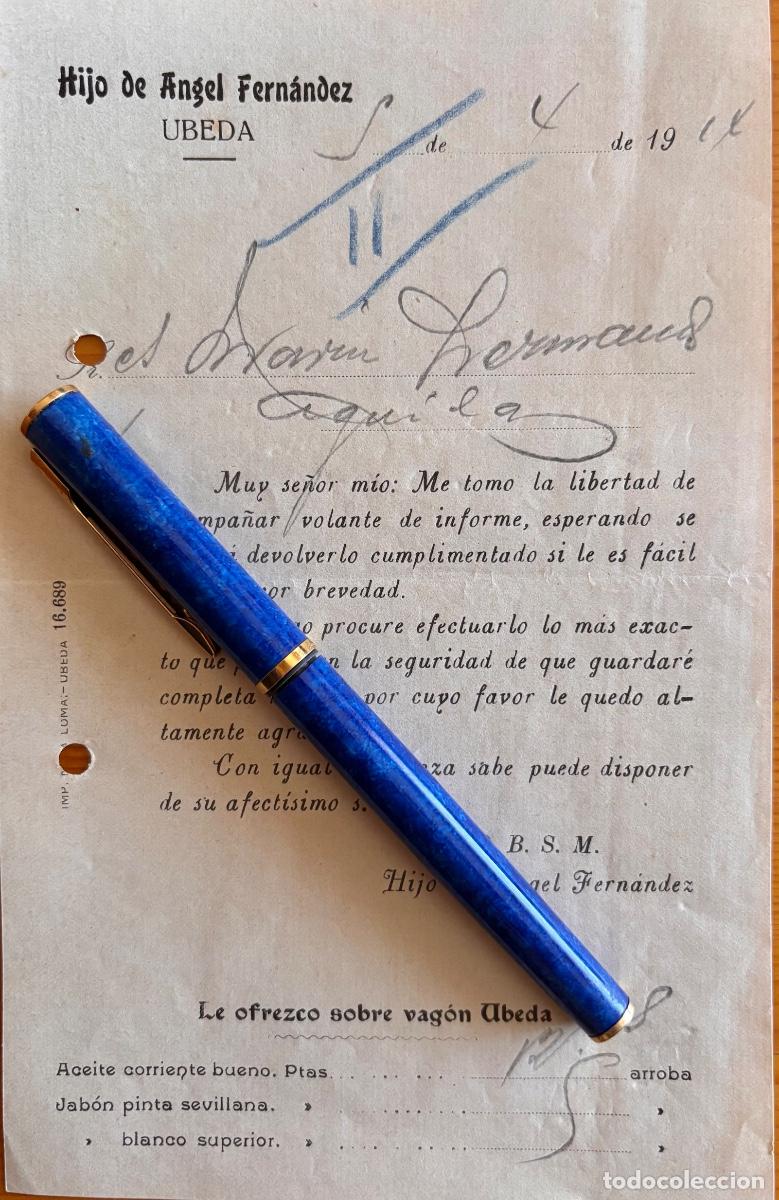 Hijo de Angel Fernández
UBEDA
5 de 4 de 1914
11
Hermanos
Aguila
Muy señor mío: Me tomo la libertad de
mpañar volante de informe, esperando se
á devolverlo cumplimentado si le es fácil
or brevedad.
procure efectuarlo lo más exac-
to que n la seguridad de que guardaré
completa por cuyo favor le quedo al-
tamente agra
Con igual za sabe puede disponer
de su afectísimo s.
B. S. M.
Hijo gel Fernández
IMP. LA LOMA.-UBEDA 16.689
Le ofrezco sobre vagón Ubeda
Aceite corriente bueno. Ptas. arroba
Jabón pinta sevillana. » »
» blanco superior. » »
todocoleccion